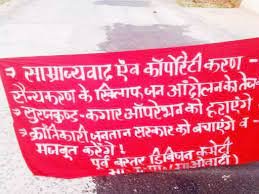 → साम्राज्यवाद एंव कॉर्पोरेटी करण -
सैन्यकरण के खिलाफ जन आन्दोलन को तेज
→ सुरजकुण्ड - कगार ऑपरेशन को हराएंगे
→ क्रांतिकारी जनतान सरकार को बचाएंगे व
मजबुत करेंगे !
पूर्व बस्तर डिविजन कमेटी
(माओवादी)